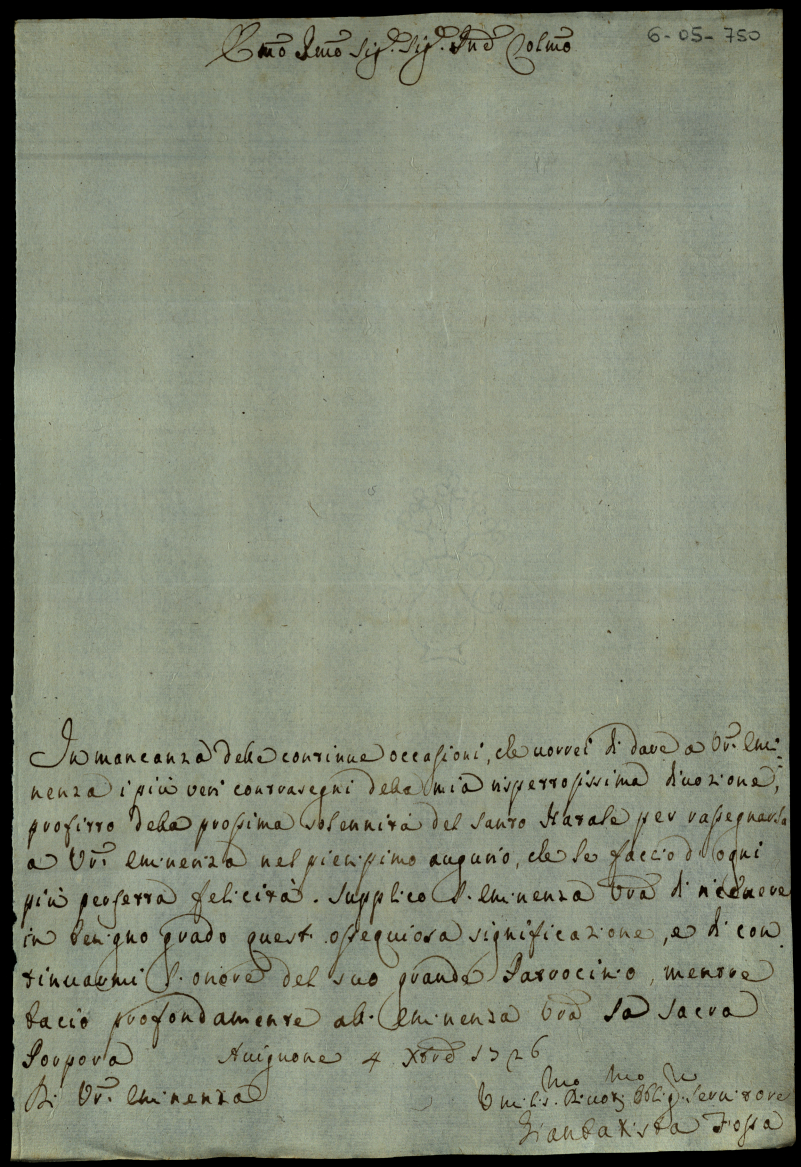 Emõ Rmõ Sig.r Sig.r Pnẽ Colmõ
6-05-750
In mancanza delle continue occasioni, che vorrei di dare a Vr̃a Emi-
nenza i più veri contrasegni della mia rispettosissima divozione,
profitto della prossima solennità del Santo Natale per rassegnarla
a Vr̃a Eminenza nel pienissimo augurio, che le faccio d'ogni
più perfetta felicità. Supplico l'Eminenza Vrã di ricevere
in benigno grado quest'ossequiosa significazione, e di con
tinuarmi l'onore del suo grande Patrocinio, mentre
bacio profondamente all'Eminenza Vrã la Sacra
Porpora Avignone 4 Xbrẽ 1726
Di Vr̃a Eminenza
Umilis.mo Divotis.mo Oblig.mo Servitore
Gianbatista Fossa